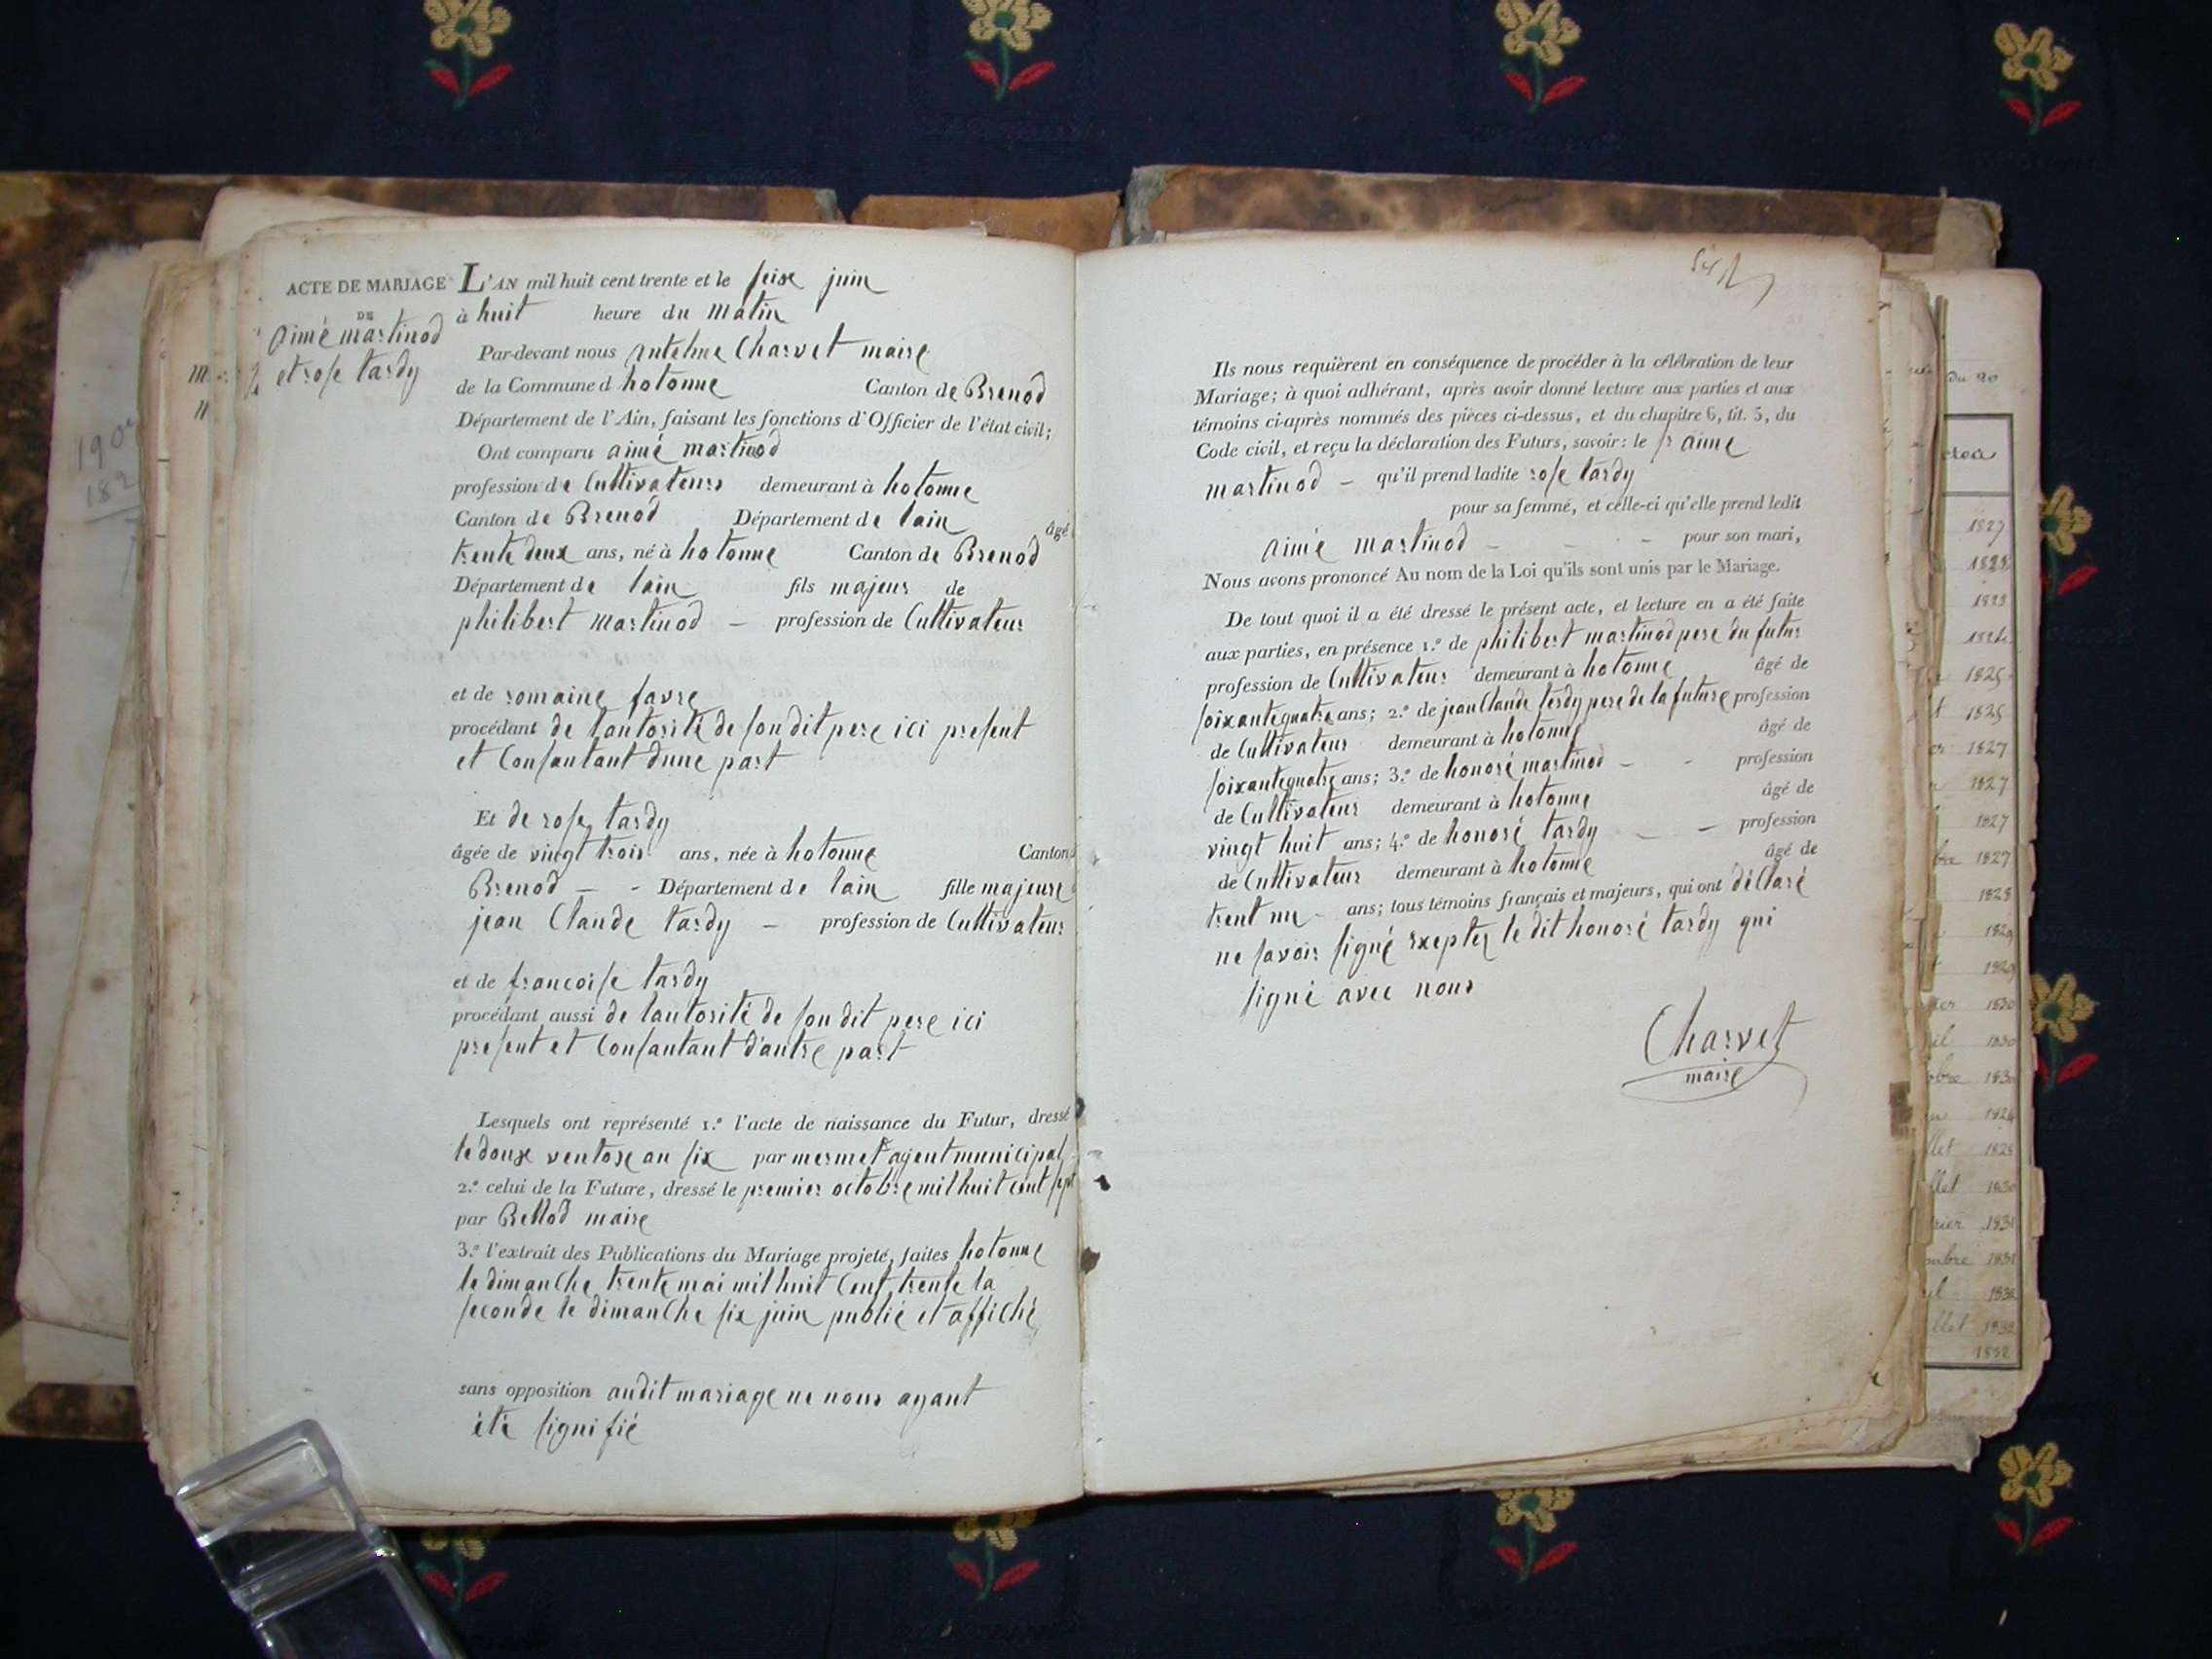 ACTE DE MARIAGE
DE
aimé martinod
et rose tardy
L'AN mil huit cent trente et le seise juin
à huit heure du matin
Par-devant nous antelme Charvet maire
de la Commune d hotonne Canton de Brenod
Département de l'Ain, faisant les fonctions d'Officier de l'état civil;
Ont comparu aimé martinod
profession de Cultivateurs demeurant à hotonne
Canton de Brenod Département de lain âgé
trente deux ans, né à hotonne Canton de Brenod
Département de lain fils majeur de
philibert martinod - profession de Cultivateur
et de romaine favre
procédant de lautorité de son dit pere ici present
et Consantant dune part
Et de rose tardy
âgée de vingt trois ans, née à hotonne Canton
Brenod - - Département de lain fille majeure
jean Claude tardy - profession de Cultivateur
et de francoise tardy
procédant aussi de lautorité de son dit pere ici
present et Consantant d'autre part
Lesquels ont représenté 1.° l'acte de naissance du Futur, dressé
le douse ventose an six par mermet agent municipal
2.° celui de la Future, dressé le premier octobre mil huit cent sept
par Bellod maire
3.° l'extrait des Publications du Mariage projeté, faites hotonne
le dimanche trente mai mil huit Cent trente la
seconde le dimanche six juin publié et affiché
sans opposition audit mariage ne nous ayant
été signifié
Ils nous requièrent en conséquence de procéder à la célébration de leur
Mariage; à quoi adhérant, après avoir donné lecture aux parties et aux
témoins ci-après nommés des pièces ci-dessus, et du chapitre 6, tit. 5, du
Code civil, et reçu la déclaration des Futurs, savoir: le sr aimé
martinod - qu'il prend ladite rose tardy
pour sa femme, et celle-ci qu'elle prend ledit
aimé martinod - - - pour son mari,
Nous avons prononcé Au nom de la Loi qu'ils sont unis par le Mariage.
De tout quoi il a été dressé le présent acte, et lecture en a été faite
aux parties, en présence 1.° de philibert martinod pere du futur
profession de Cultivateur demeurant à hotonne âgé de
soixantequatre ans; 2.° de jean Claude terdy pere de la future profession
de Cultivateur demeurant à hotonne âgé de
soixantequatre ans; 3.° de honoré martinod - - profession
de Cultivateur demeurant à hotonne âgé de
vingt huit ans; 4.° de honoré tardy - - profession
de Cultivateur demeurant à hotonne âgé de
trent un - ans; tous témoins français et majeurs, qui ont déclaré
ne savoir signé exepter le dit honoré tardy qui
signé avec nous
Charvet
maire
du 20
1827
1828
1825
1825
1827
1827
1827
1827
1828
1829
1829
1830
1830
1830
1828
1830
1831
1831
1832
1832
1832